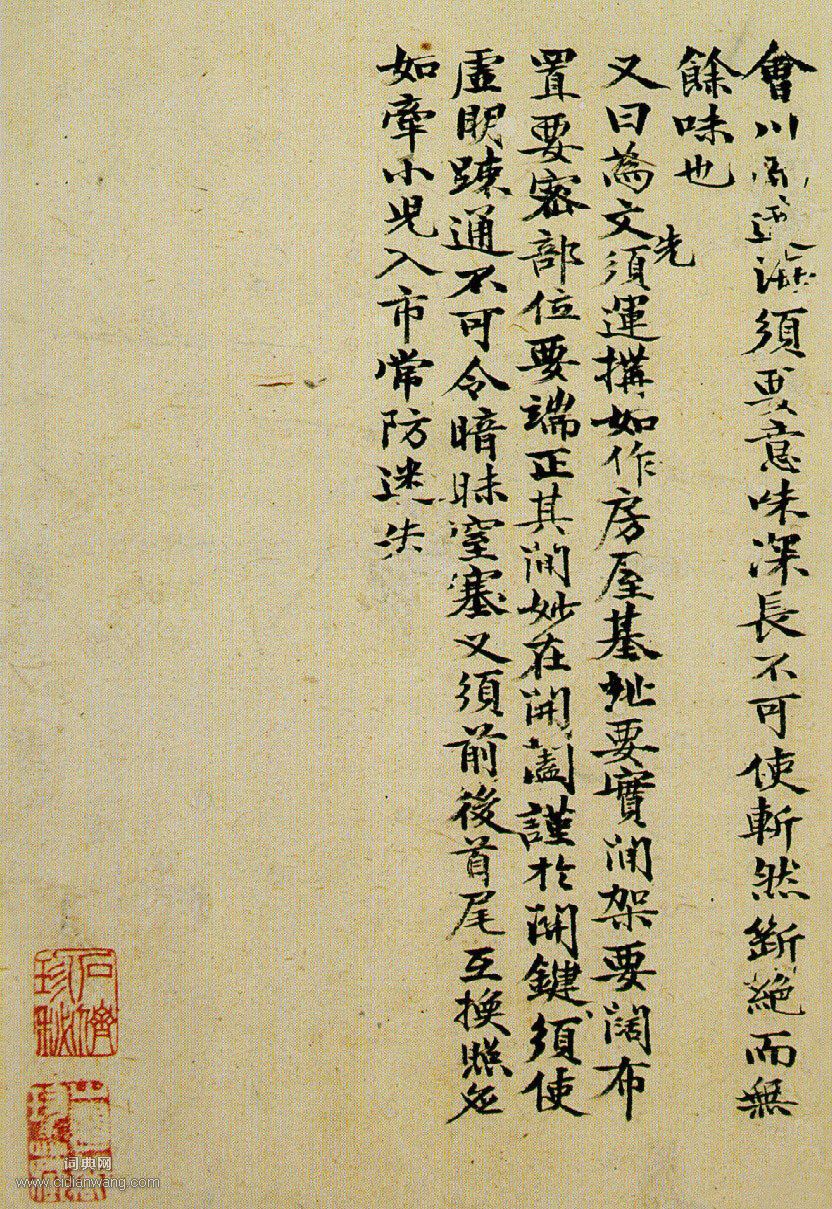 會川流造海須要意味深長不可使斬然斷絕而無
餘味也
又曰為文須先運搆如作房屋基址要實間架要闊布
置要密部位要端正其間妙在開闔謹於開鍵須使
虛眀踈通不可令暗昧窒塞又須前後首尾互換照
如牽小児入市常防迷失
词典网
www.cidianwang.com